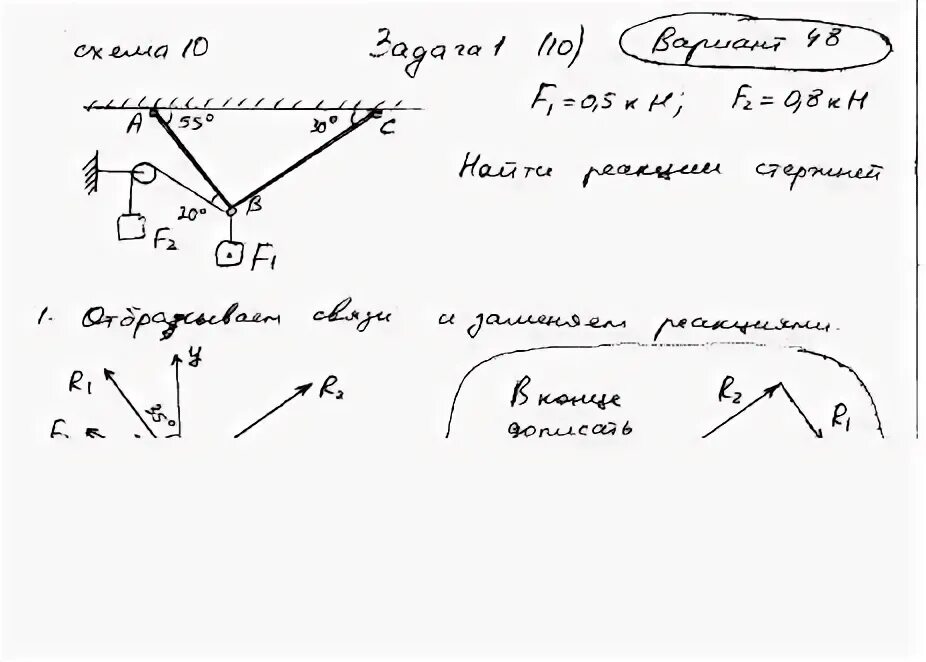 схема 10 Задача 1 (10) Вариант 48
F₁ = 0,5 кН; F₂ = 0,8 кН
A 55° 30° C
Найти реакции стержней
20° B
F₂
F₁
1. Отбрасываем связи и заменяем реакциями.
y
R₁ 35° R₂
В конце
дописать
R₂ R₁